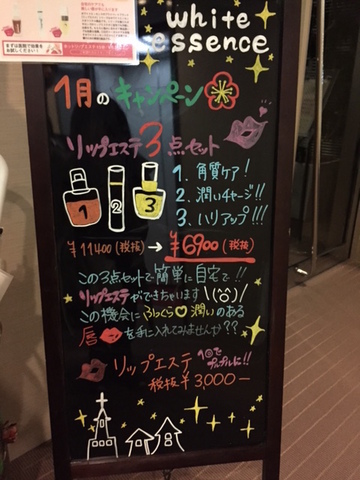 white
essence
1月のキャンペーン
リップエステ3点セット
1. 角質ケア!
2. 潤いチャージ!!
3. ハリアップ!!!
1
2
3
¥11400(税抜)→¥6900(税抜)
この3点セットで簡単に自宅で!!
リップエステができちゃいます\(^o^)/
この機会にふっくら♡潤いのある
唇を手に入れてみませんか??
リップエステ 1回でプルプルに!!
税抜¥3,000-